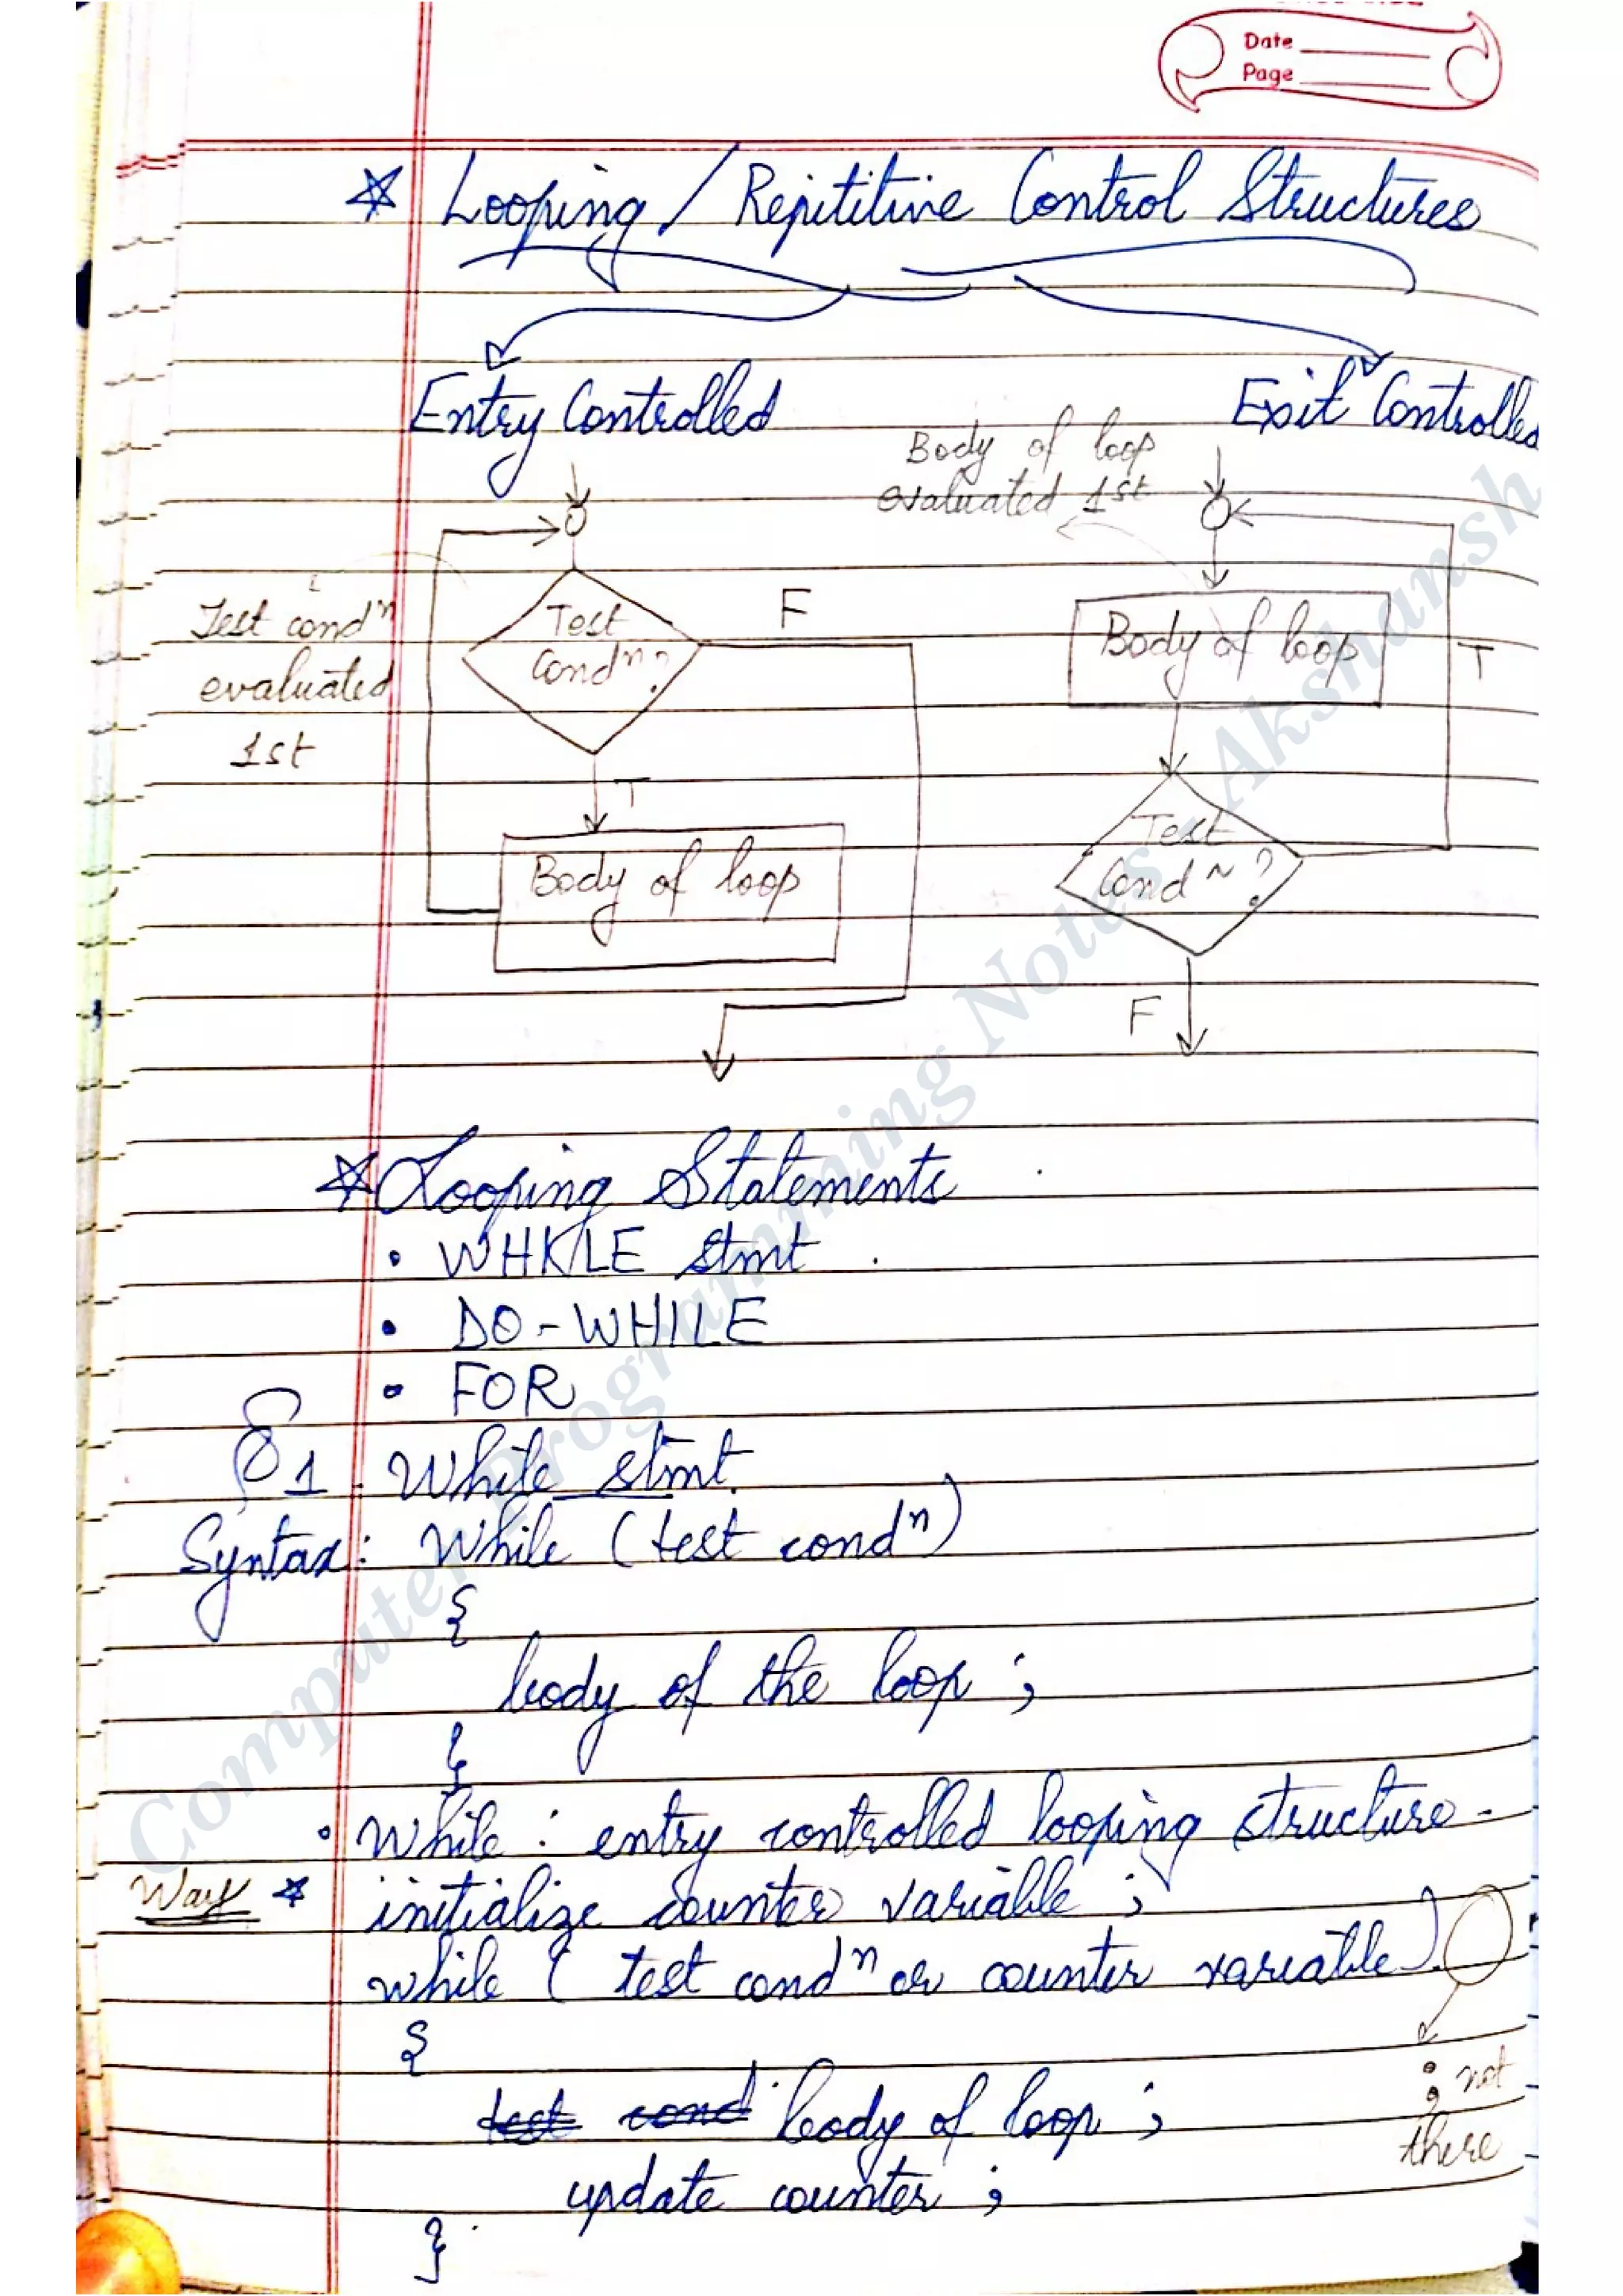 Date
Page
* Looping / Repititive Control Structures
Entry Controlled
Exit Controlled
Body of loop
evaluated 1st
Test condⁿ
evaluated
1st
Test
Condⁿ?
F
T
Body of loop
Body of loop
T
Test
Condⁿ?
F
* Looping Statements
• WHILE stmt
• DO-WHILE
• FOR
1. While stmt.
Syntax: While (test condⁿ)
{
body of the loop ;
}
• While : entry controlled looping structure.
Way * initialize counter variable ;
while ( test condⁿ or counter variable)
{
; not
there
test cond body of loop ;
update counter ;
}
Computer Programming Notes - Akshansh